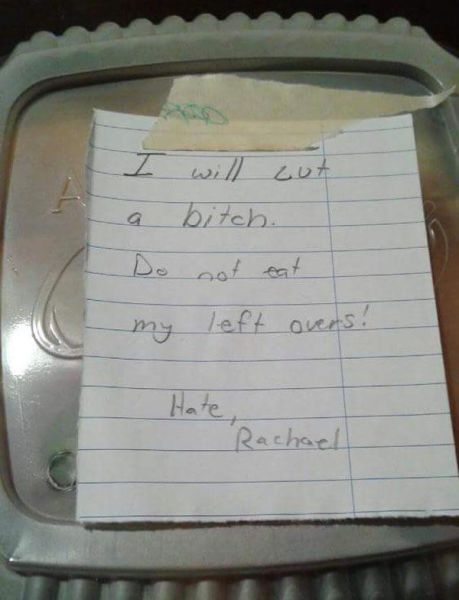 I will cut
a bitch.
Do not eat
my left overs!
Hate,
Rachael